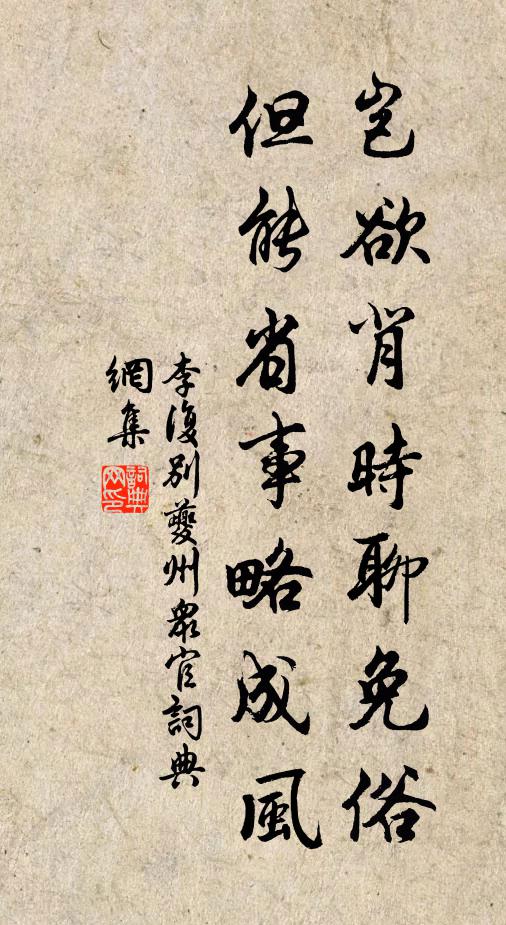 豈欲背時聊免俗
但能省事略成風
李復別夔州眾官詞典
網集
詞典網印